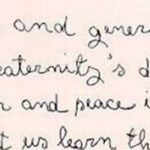 and gener
aternity's d
and peace i
t us learn th